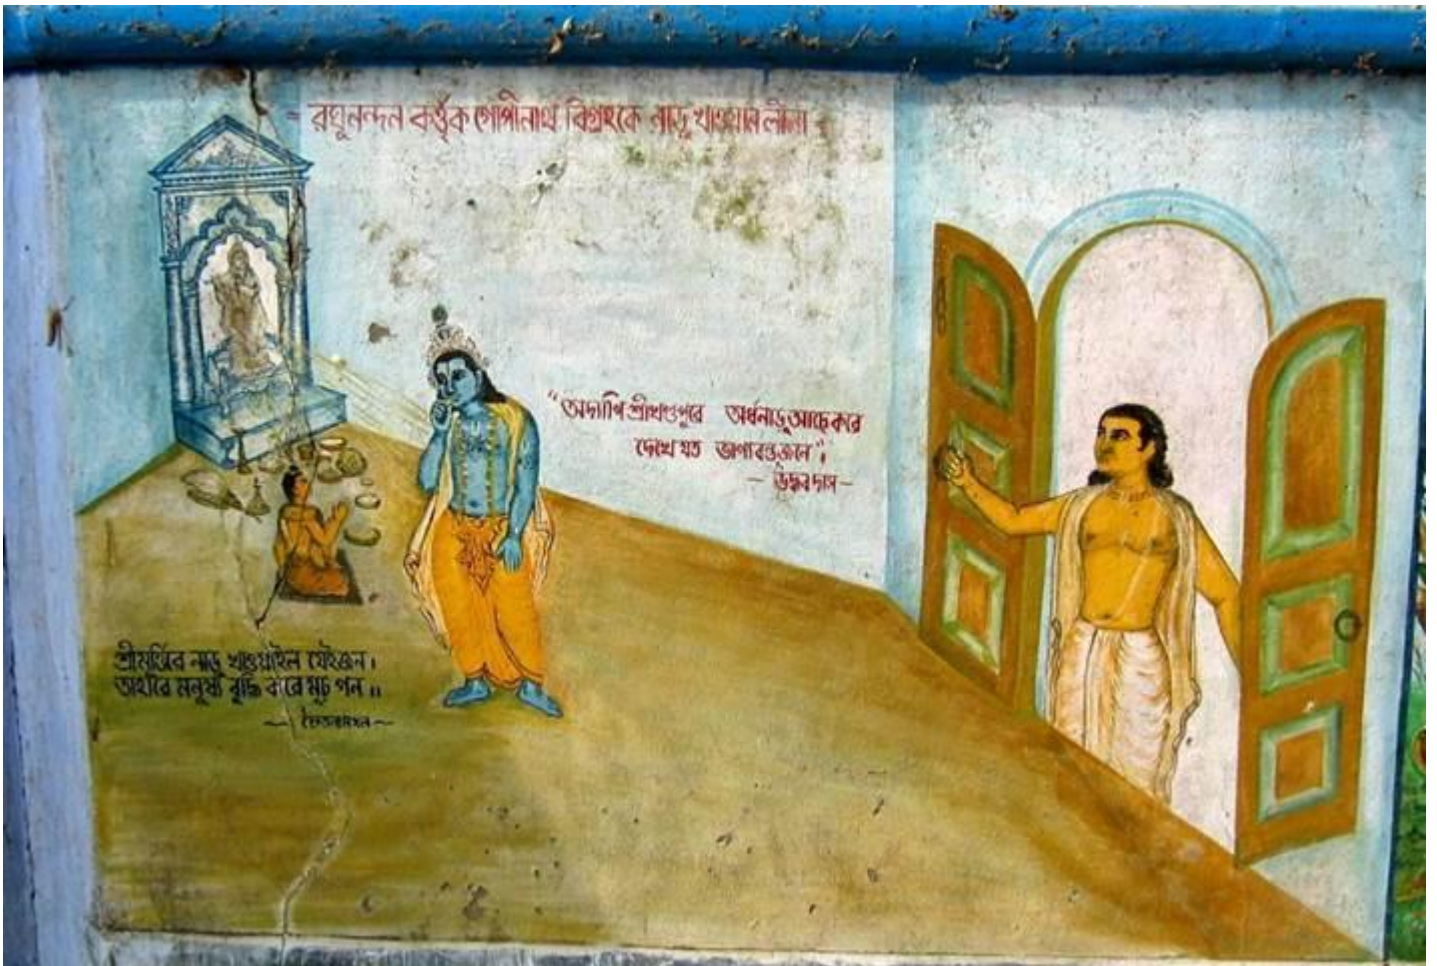 রঘুনন্দন কর্ত্তৃক গোপীনাথ বিগ্রহকে নাড়ু খাওয়ান লীলা
"অদ্যাপি শ্রীখণ্ডপুরে অর্ধনাড়ু আছে করে
দেখে যত ভাগ্যবন্তজনে";
— উদ্ধব দাস —
শ্রীমূর্ত্তিরে নাড়ু খাওয়াইল যেইজন।
তাহারে মনুষ্য বুদ্ধি করে মূঢ় গন॥